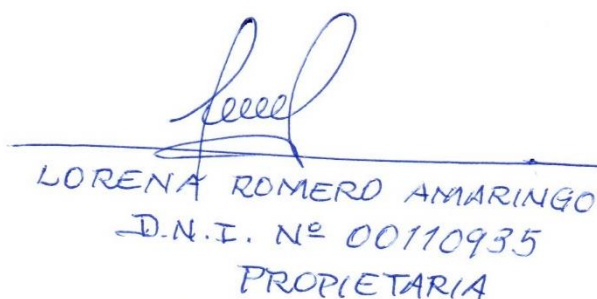 LORENA ROMERO AMARINGO
D.N.I. Nº 00110935
PROPIETARIA